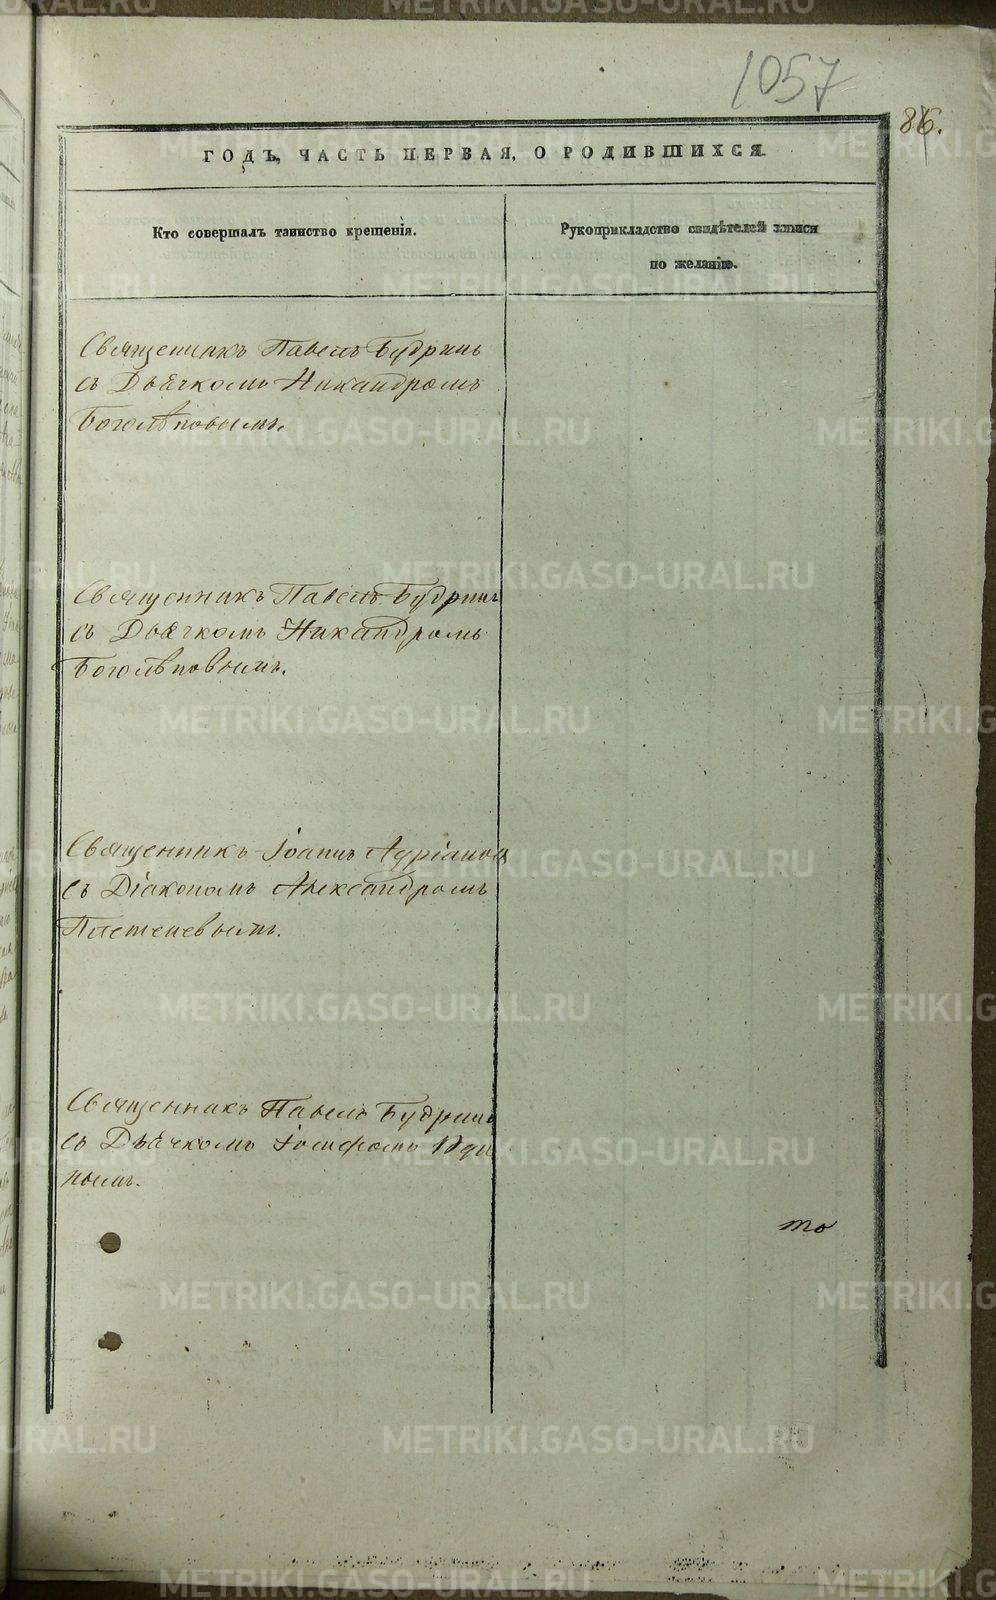 1057
86.
ГОДЪ, ЧАСТЬ ПЕРВАЯ, О РОДИВШИХСЯ.
Кто совершалъ таинство крещенія.
Рукоприкладство свидѣтелей записи
по желанію.
Священникъ Павелъ Будринъ
съ Дьячкомъ Никандромъ
Боголѣповымъ.
Священникъ Павелъ Будринъ
съ Дьячкомъ Никандромъ
Боголѣповымъ.
Священникъ Іоаннъ Адріановъ
съ Діакономъ Александромъ
Плетеневымъ.
Священникъ Павелъ Будринъ
съ Дьячкомъ Іосифомъ
нымъ.
то
METRIKI.GASO-URAL.RU